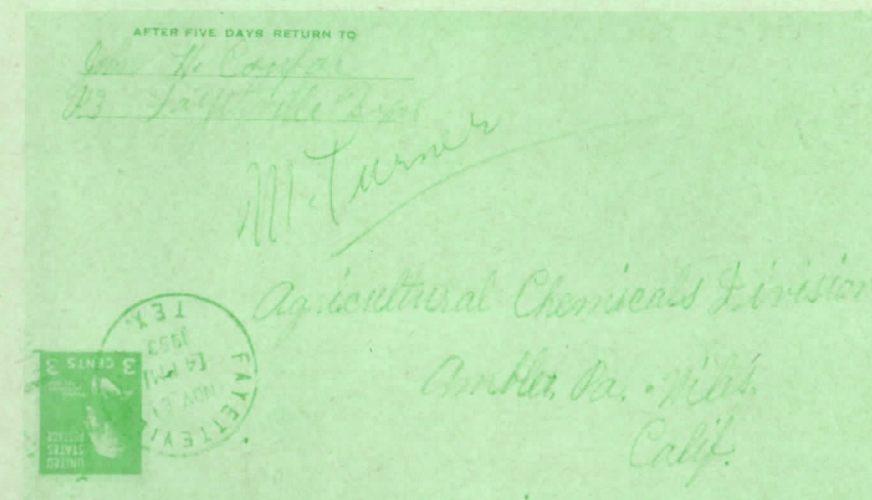 AFTER FIVE DAYS RETURN TO
John H.
R3 Fayetteville Texas
Mr. Turner
Agricultural Chemicals Division
Ambler, Pa. - Niles.
Calif.
FAYETTEVI
TEX.
NOV
PM
1953
3 CENTS 3
UNITED
STATES
POSTAGE